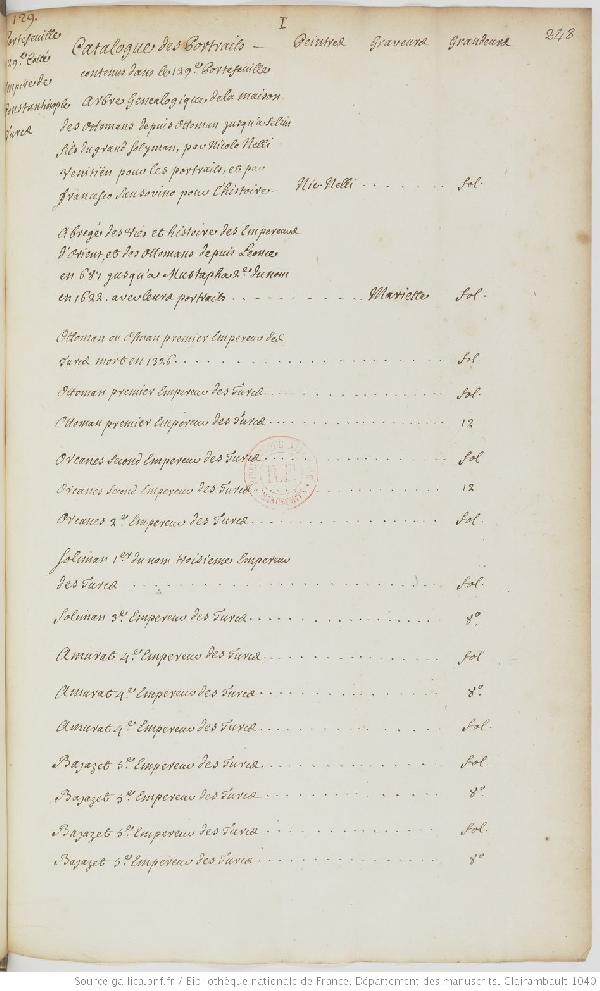 129.
I
248
Portefeuille
129.e Coté
Empire de
Constantinople
Turcs
Catalogue des Portraits
Peintres Graveurs Grandeurs
contenus dans le 129.e Portefeuille
Arbre Genealogique de la maison
des Ottomans depuis Ottoman jusqu'a Selim
fils du grand Solyman, par Nicolo Nelli
venitien pour les portraits, et par
francesco Sansovino pour l'histoire Nic. Nelli fol.
Abregé des vies et histoire des Empereurs
d'Orient, et des Ottomans depuis Leonce
en 687 jusqu'a Mustapha 2.e du nom
en 1622. avec leurs portraits Mariette fol.
Ottoman ou Osman premier Empereur des
Turcs mort en 1326. fol
Ottoman premier Empereur des Turcs fol.
Ottoman premier Empereur des Turcs 12
Orcanes second Empereur des Turcs fol
Orcanes second Empereur des Turcs 12
Orcanes 2.e Empereur des Turcs fol.
Soliman 1.er du nom troisieme Empereur
des Turcs fol.
Soliman 3.e Empereur des Turcs 8.o
Amurat 4.e Empereur des Turcs fol
Amurat 4.e Empereur des Turcs 8.o
Amurat 4.e Empereur des Turcs fol.
Bajazet 5.e Empereur des Turcs fol
Bajazet 5.e Empereur des Turcs 8.o
Bajazet 5.e Empereur des Turcs fol.
Bajazet 5.e Empereur des Turcs 8.o
Source gallica.bnf.fr / Bibliothèque nationale de France. Département des manuscrits. Clairambault 1040